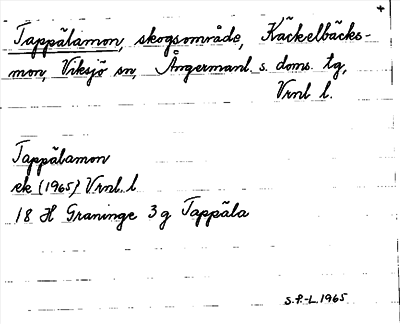 +
Tappälamon, skogsområde, Käckelbäcks-
mon, Viksjö sn, Ångermanl. s. doms. tg,
Vrnl l.
Tappälamon
ek (1965) Vrnl. l
18 H Graninge 3 g Tappäla
S.P.-L 1965